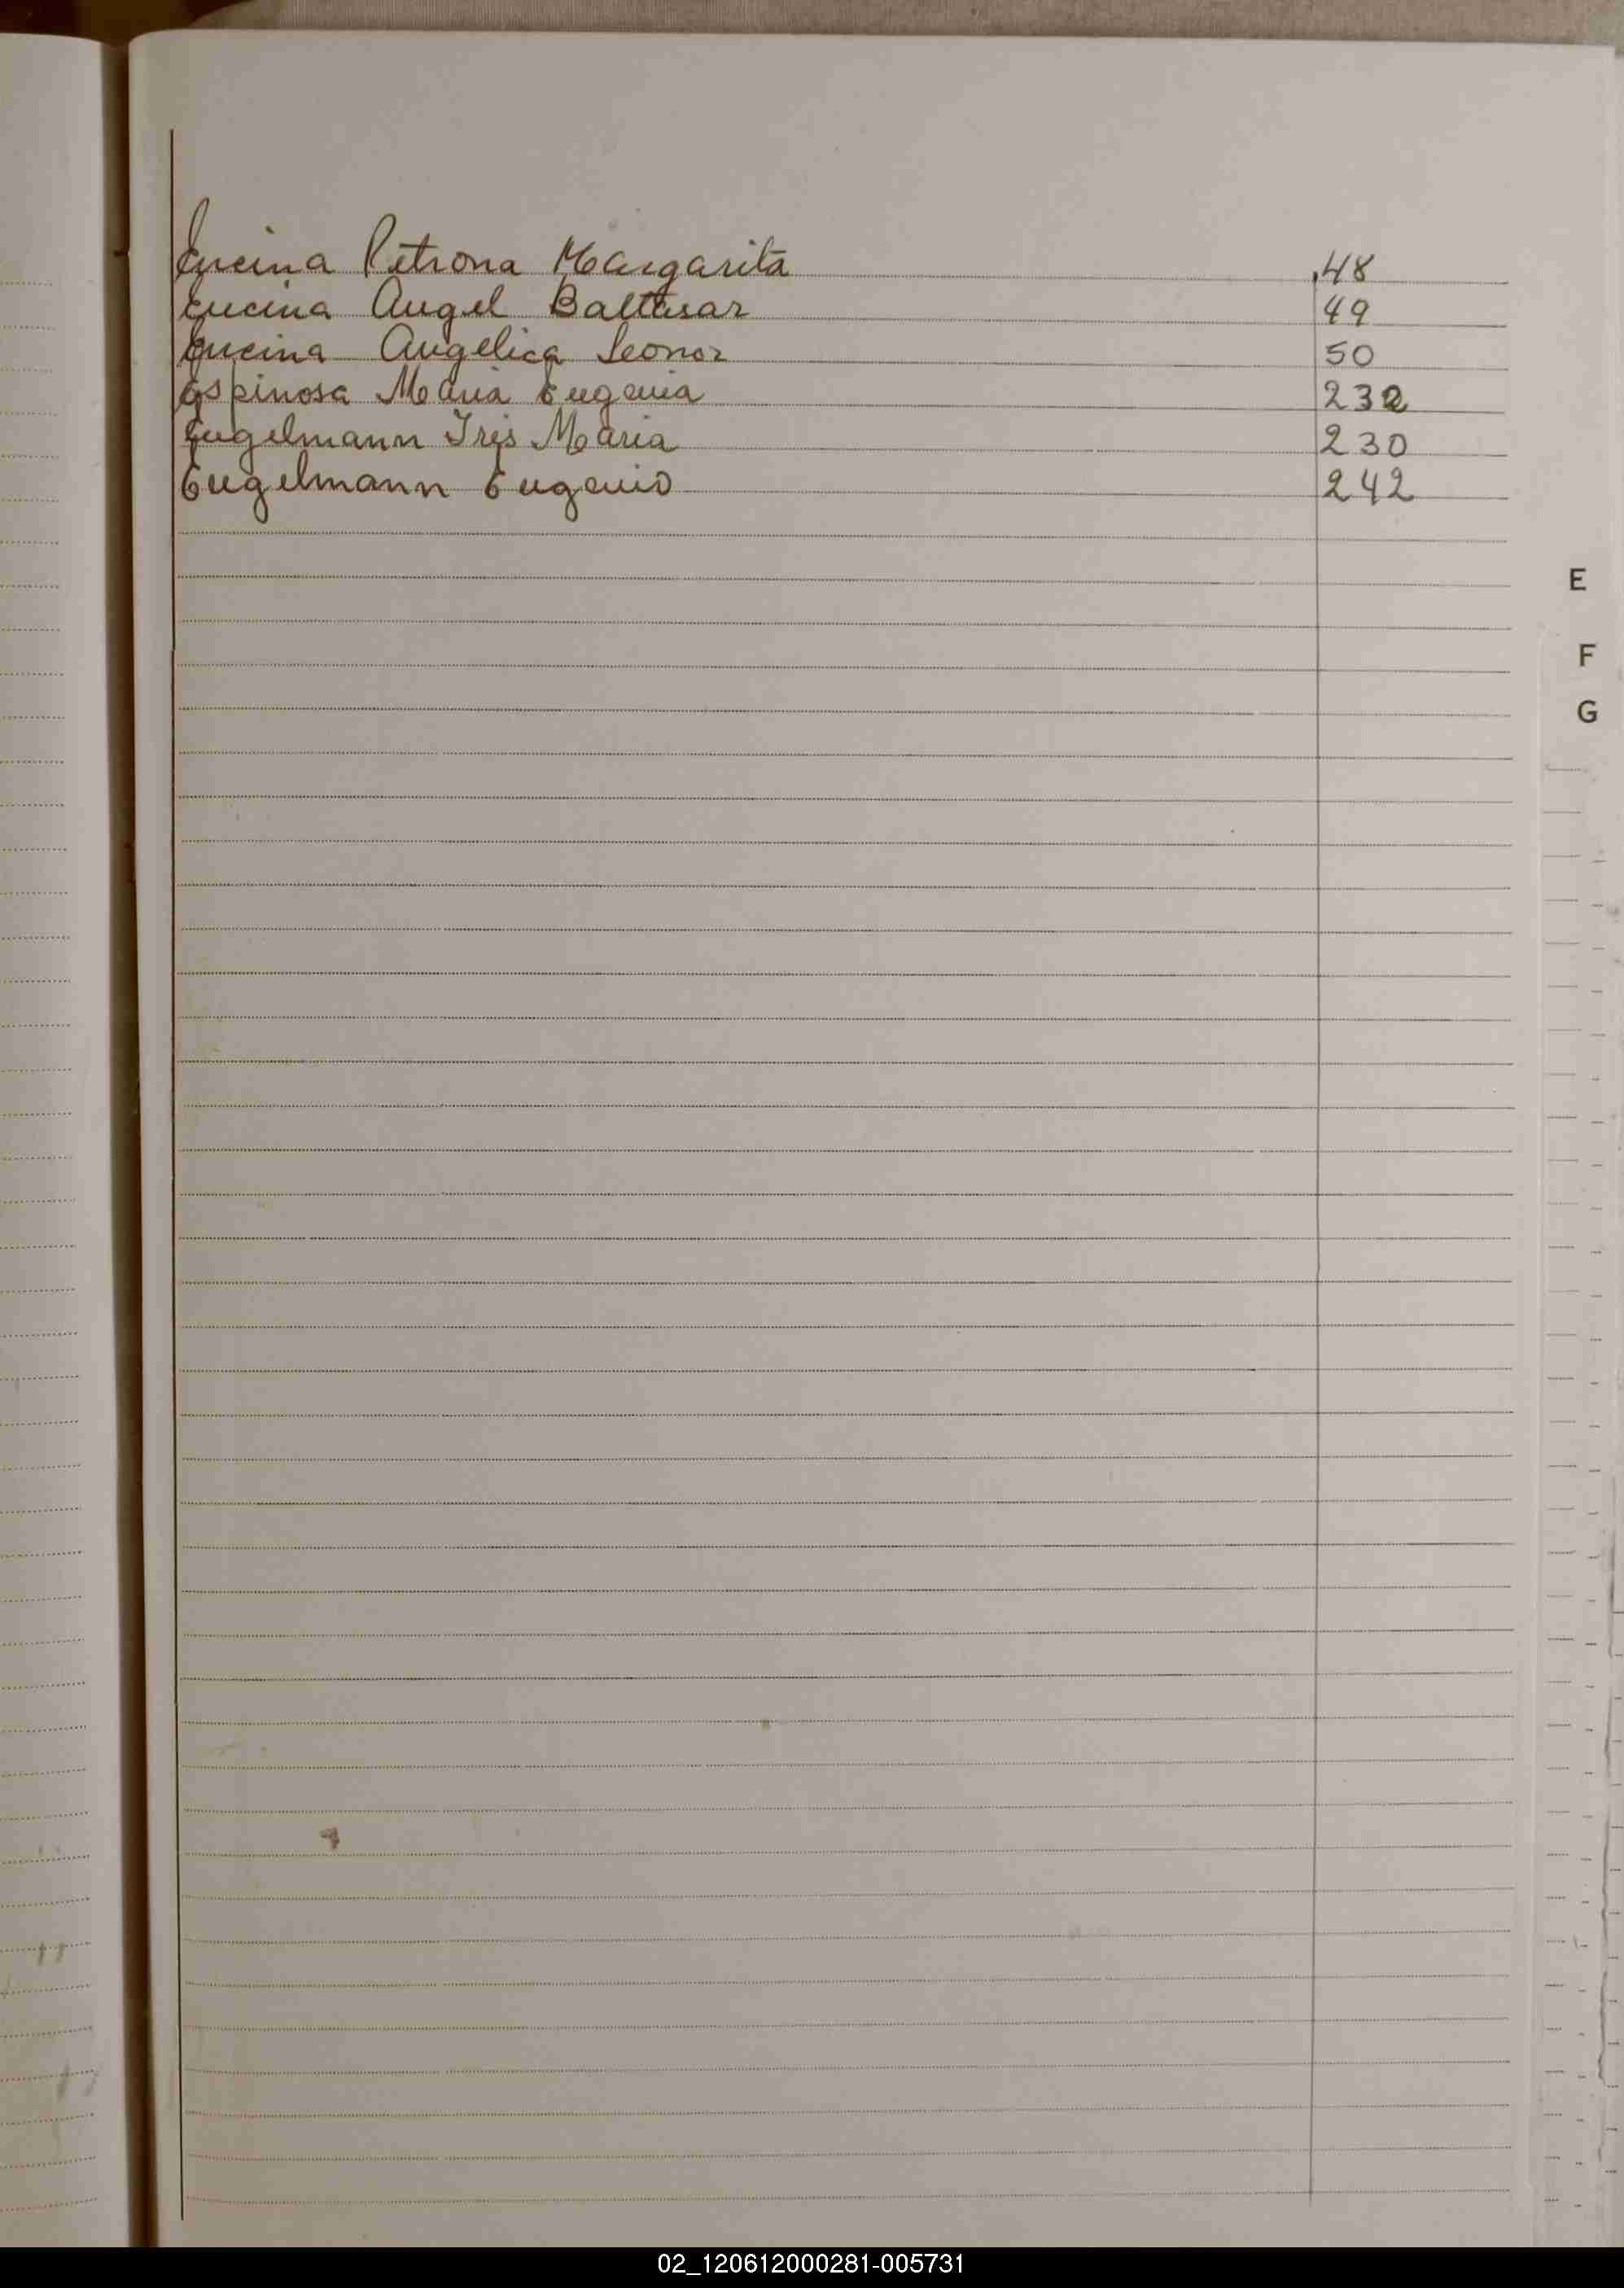 Encina Petrona Margarita 48
Encina Angel Baltasar 49
Encina Angelica Leonor 50
Espinosa Maria Eugenia 232
Engelmann Iris Maria 230
Engelmann Eugenio 242
E
F
G
02_120612000281-005731